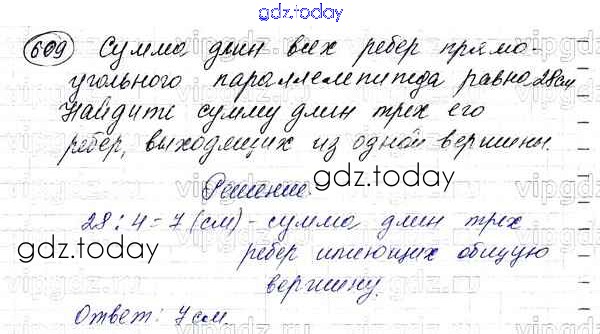 gdz.today
609 Сумма длин всех ребер прямо-
угольного параллелепипеда равна 28см
Найдите сумму длин трех его
ребер, выходящих из одной вершины.
gdz.today
Решение.
28:4=7 (см) - сумма длин трех
gdz.today
ребер имеющих общую
вершину.
gdz.today
Ответ: 7см